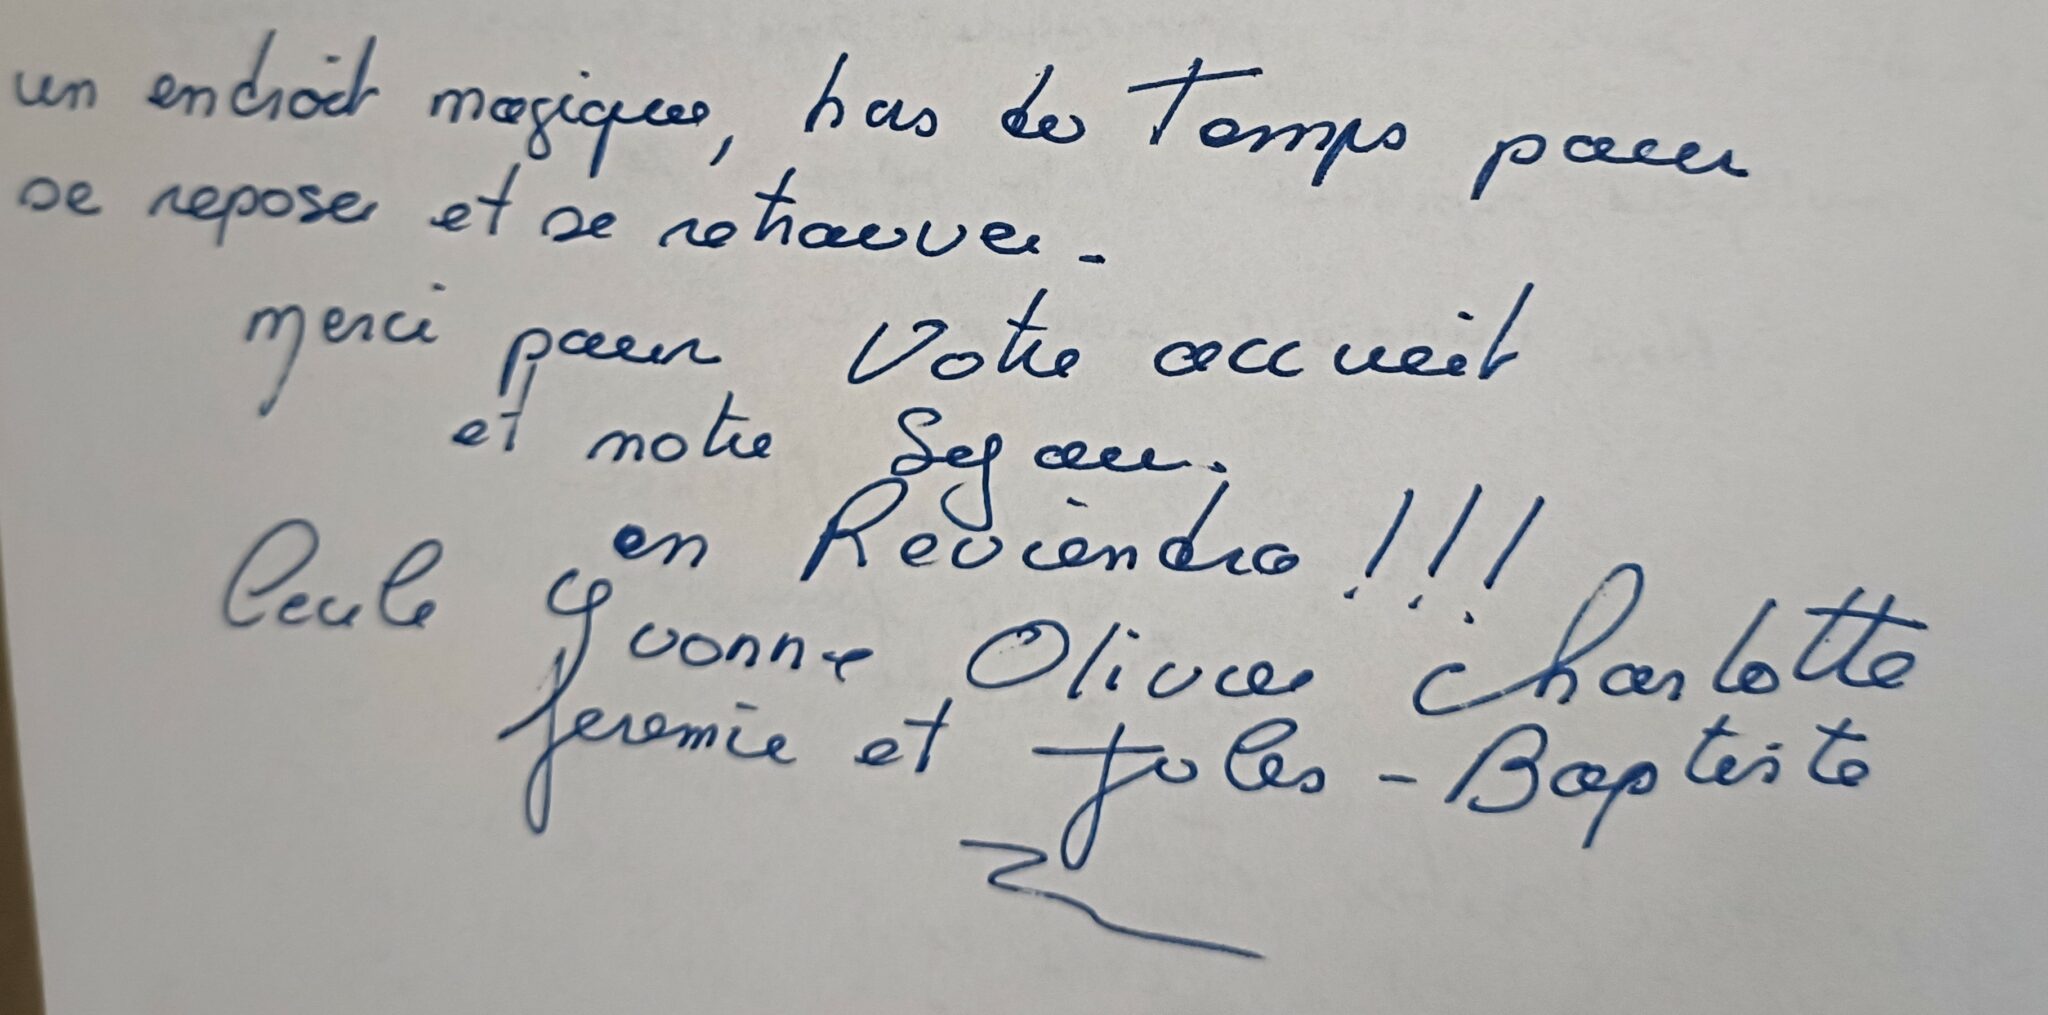 un endroit magique, hors du Temps pour
se reposer et se retrouver.
merci pour Votre accueil
et notre Sejour.
on Reviendra !!!
Cécile Yvonne Olivier Charlotte
Jeremie et Jules-Baptiste